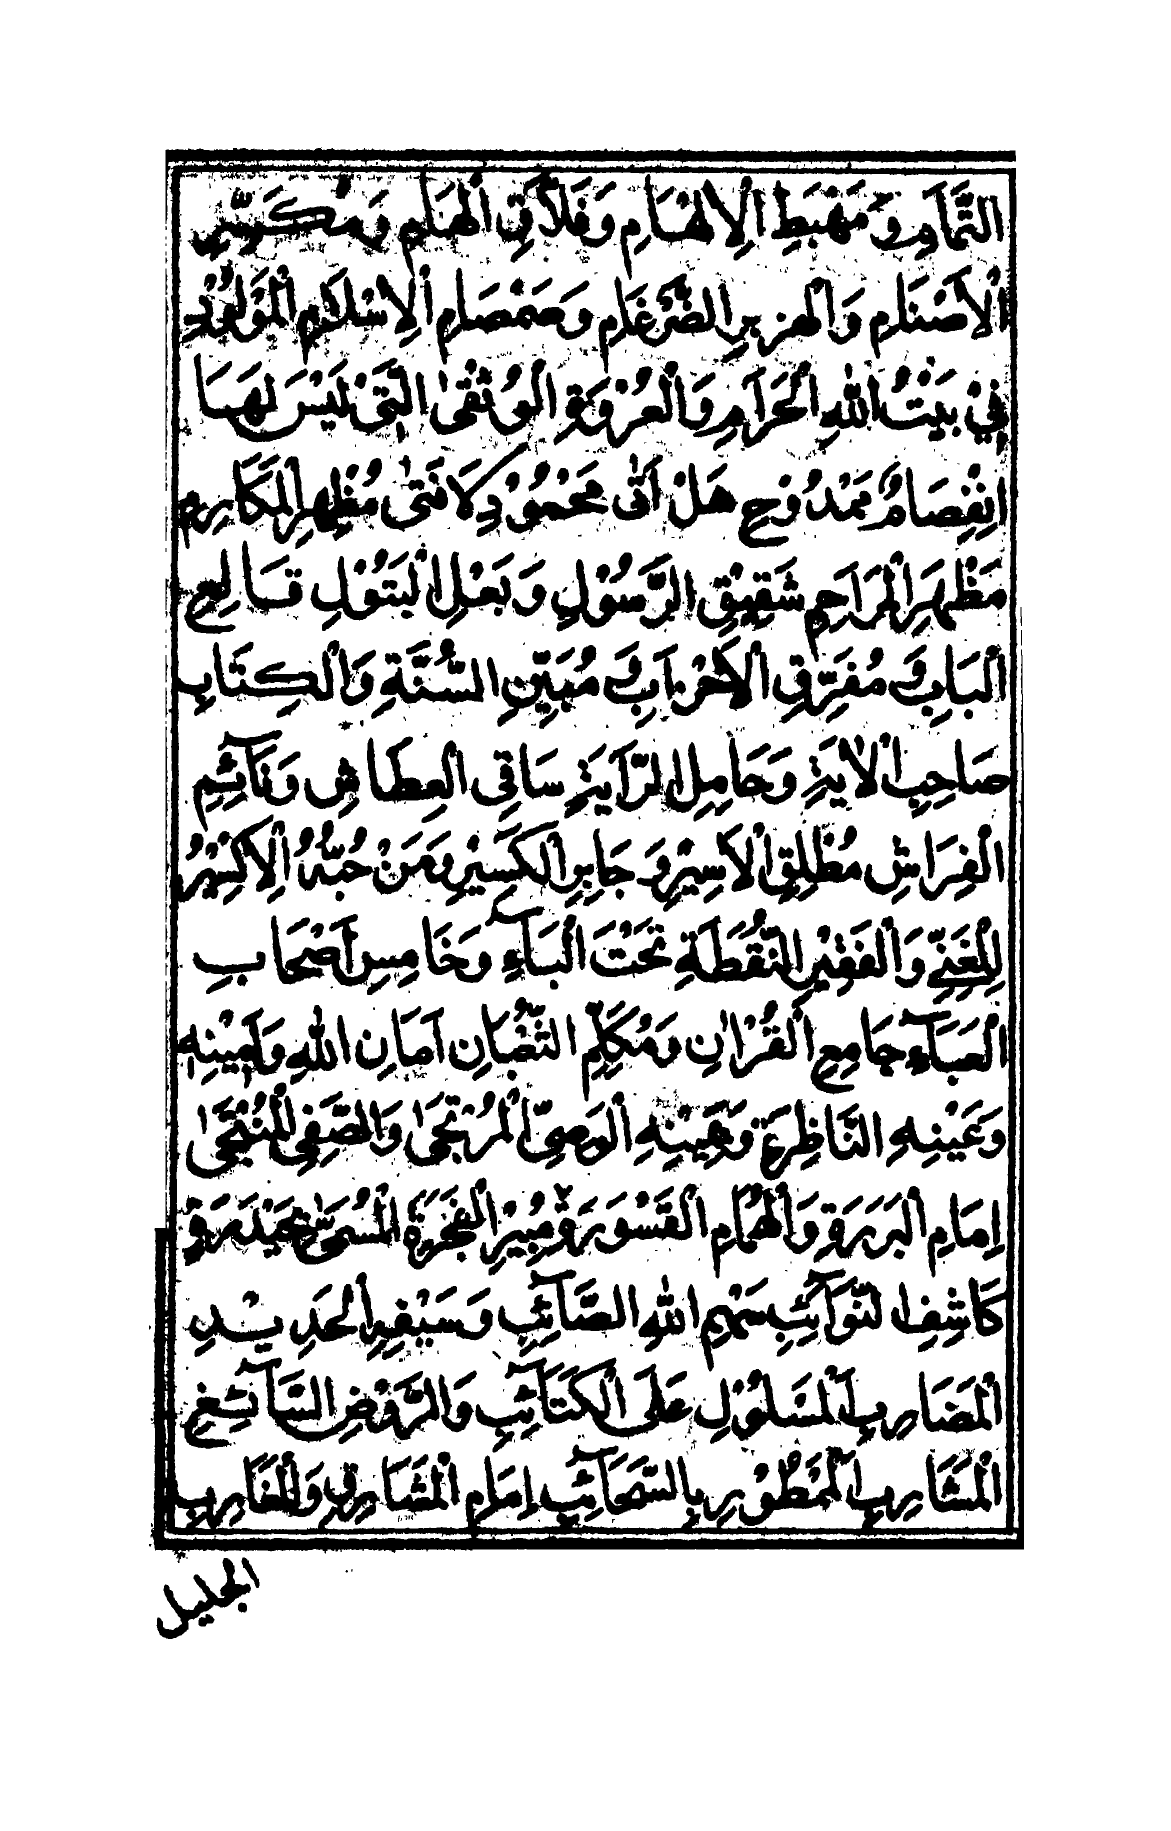 التَّمَامِ وَمَهْبِطِ الْاِلْهَامِ وَفَلَّاقِ الْهَامِ وَمُكَسِّرِ
الْاَصْنَامِ وَالْهِزَبْرِ الضِّرْغَامِ وَصَمْصَامِ الْاِسْلَامِ الْمَوْلُوْدِ
فِيْ بَيْتِ اللهِ الْحَرَامِ وَالْعُرْوَةِ الْوُثْقٰى الَّتِيْ لَيْسَ لَهَا
اِنْفِصَامٌ مَمْدُوْحِ هَلْ اَتٰى مَحْمُوْدِ لَا فَتٰى مُظْهِرِ الْمَكَارِمِ
مَظْهَرِ الْمَرَاحِمِ شَقِيْقِ الرَّسُوْلِ وَبَعْلِ الْبَتُوْلِ قَالِعِ
الْبَابِ وَمُفَرِّقِ الْاَحْزَابِ مُبَيِّنِ السُّنَّةِ وَالْكِتَابِ
صَاحِبِ الْاٰيَةِ وَحَامِلِ الرَّايَةِ سَاقِى الْعِطَاشِ وَنَآئِمِ
الْفِرَاشِ مُطْلِقِ الْاَسِيْرِ وَجَابِرِ الْكَسِيْرِ وَمَنْ حُبُّهُ الْاِكْسِيْرُ
لِلْغَنِيِّ وَالْفَقِيْرِ النُّقْطَةِ تَحْتَ الْبَآءِ وَخَامِسِ اَصْحَابِ
الْعَبَآءِ جَامِعِ الْقُرْاٰنِ وَمُكَلِّمِ الثُّعْبَانِ اَمَانِ اللهِ وَاَمِيْنِهِ
وَعَيْنِهِ النَّاظِرَةِ وَيَمِيْنِهِ الْوَصِيِّ الْمُرْتَجٰى وَالصَّفِيِّ الْمُنْتَجٰى
اِمَامِ الْبَرَرَةِ وَالْهُمَامِ الْقَسْوَرَةِ مُبِيْرِ الْفَجَرَةِ الْمُسَمّٰى بِحَيْدَرَةٍ
كَاشِفِ النَّوَآئِبِ سَهْمِ اللهِ الصَّآئِبِ وَسَيْفِهِ الْحَدِيْدِ
الْمَضَارِبِ الْمَسْلُوْلِ عَلَى الْكَتَآئِبِ وَالرَّوْضِ السَّآئِغِ
الْمَشَارِبِ الْمَمْطُوْرِ بِالسَّحَآئِبِ اِمَامِ الْمَشَارِقِ وَالْمَغَارِبِ
الجليل